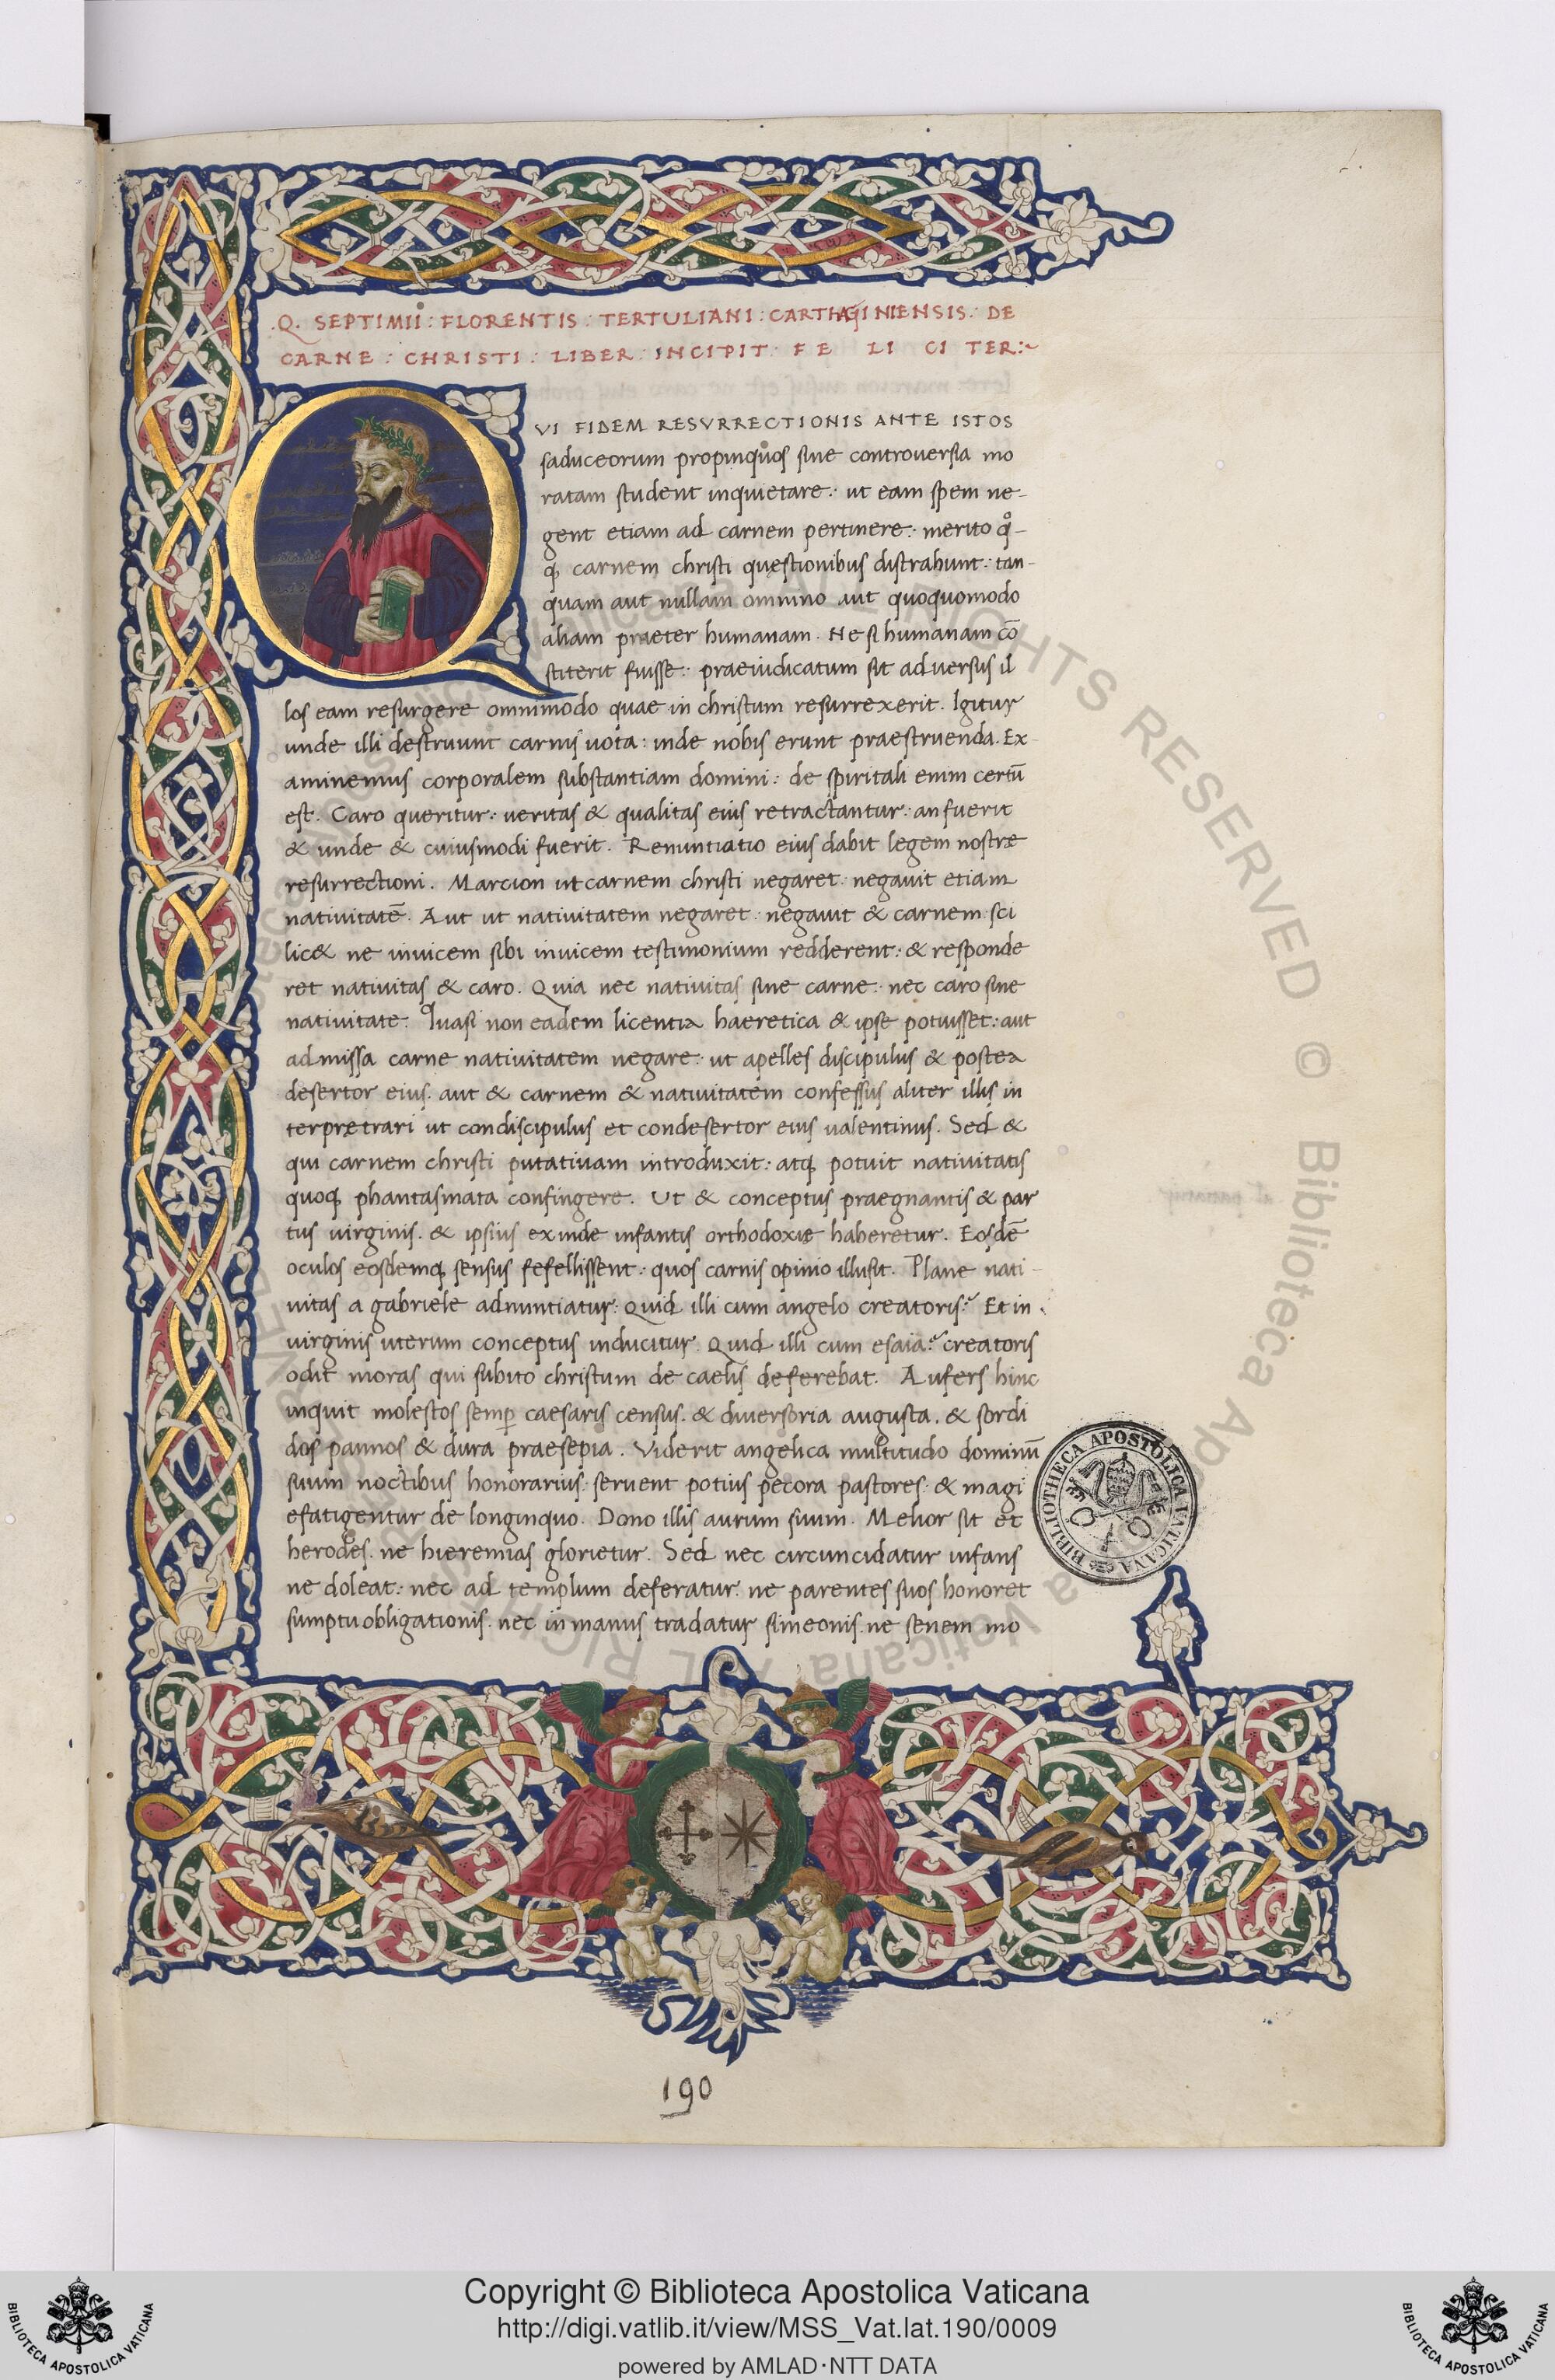 .Q. SEPTIMII : FLORENTIS : TERTULIANI : CARTHAGINIENSIS : DE
CARNE : CHRISTI : LIBER : INCIPIT : FE LI CI TER:~
QVI FIDEM RESVRRECTIONIS ANTE ISTOS
saduceorum propinquos sine controuersia mo
ratam student inquietare: ut eam spem ne-
gent etiam ad carnem pertinere: merito q̊-
q; carnem christi quęstionibus distrahunt: tan-
quam aut nullam omnino aut quoquomodo
aliam praeter humanam. Ne si humanam cō
stiterit fuisse: praeiudicatum sit aduersus il
los eam resurgere omnimodo quae in christum resurrexerit. Igitur
unde illi destruunt carnis uota: inde nobis erunt praestruenda. Ex-
aminemus corporalem substantiam domini: de spiritali enim certū
est. Caro queritur: ueritas & qualitas eius retractantur: an fuerit
& unde & cuiusmodi fuerit. Renuntiatio eius dabit legem nostræ
resurrectioni. Marcion ut carnem christi negaret: negauit etiam
natiuitatē. Aut ut natiuitatem negaret: negauit & carnem: sci
lic& ne inuicem sibi inuicem testimonium redderent: & responde
ret natiuitas & caro. Quia nec natiuitas sine carne: nec caro sine
natiuitate. Quasi non eadem licentia haeretica & ipse potuisset: aut
admissa carne natiuitatem negare: ut apelles discipulus & postea
desertor eius. aut & carnem & natiuitatem confessus aliter illis in
terprętrari ut condiscipulus et condesertor eius ualentinus. Sed &
qui carnem christi putatiuam introduxit: atq; potuit natiuitatis
quoq; phantasmata confingere. Ut & conceptus praegnantis & par
tus uirginis. & ipsius exinde infantis orthodoxie haberetur. Eosdē
oculos eosdemq; sensus fefellissent: quos carnis opinio illusit. Plane nati-
uitas a gabriele adnuntiatur: Quid illi cum angelo creatoris? Et in
uirginis uterum conceptus inducitur. Quid illi cum esaia? creatoris
odit moras qui subito christum de caelis deferebat. Aufers hinc
inquit molestos semp caesaris census. & diuersoria augusta. & sordi
dos pannos & dura praesepia. Viderit angelica multitudo dominū
suum noctibus honorarius: seruent potius pecora pastores: & magi
efatigentur de longinquo. Dono illis aurum suum. Melior sit et
herodes. ne hieremias glorietur. Sed nec circuncidatur infans
ne doleat: nec ad templum deferatur. ne parentes suos honoret
sumptu obligationis. nec in manus tradatur simeonis. ne senem mo
BIBLIOTHECA APOSTOLICA VATICANA
190
ALL RIGHTS RESERVED © Biblioteca Apostolica Vaticana
Copyright © Biblioteca Apostolica Vaticana
http://digi.vatlib.it/view/MSS_Vat.lat.190/0009
powered by AMLAD·NTT DATA
BIBLIOTECA APOSTOLICA VATICANA
BIBLIOTECA APOSTOLICA VATICANA